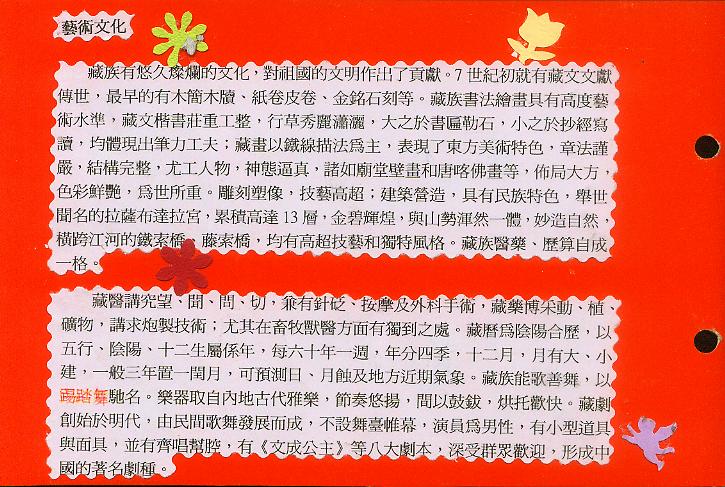 藝術文化
藏族有悠久燦爛的文化，對祖國的文明作出了貢獻。7 世紀初就有藏文文獻
傳世，最早的有木簡木牘、紙卷皮卷、金銘石刻等。藏族書法繪畫具有高度藝
術水準，藏文楷書莊重工整，行草秀麗瀟灑，大之於書匾勒石，小之於抄經寫
讀，均體現出筆力工夫；藏畫以鐵線描法爲主，表現了東方美術特色，章法謹
嚴，結構完整，尤工人物，神態逼真，諸如廟堂壁畫和唐喀佛畫等，佈局大方，
色彩鮮艷，爲世所重。雕刻塑像，技藝高超；建築營造，具有民族特色，舉世
聞名的拉薩布達拉宮，累積高達 13 層，金碧輝煌，與山勢渾然一體，妙造自然，
橫跨江河的鐵索橋、藤索橋，均有高超技藝和獨特風格。藏族醫藥、歷算自成
一格。
藏醫講究望、聞、問、切，兼有針砭、按摩及外科手術，藏藥博采動、植、
礦物，講求炮製技術；尤其在畜牧獸醫方面有獨到之處。藏曆爲陰陽合歷，以
五行、陰陽、十二生屬係年，每六十年一週，年分四季，十二月，月有大、小
建，一般三年置一閏月，可預測日、月蝕及地方近期氣象。藏族能歌善舞，以
踢踏舞馳名。樂器取自內地古代雅樂，節奏悠揚，間以鼓鈸，烘托歡快。藏劇
創始於明代，由民間歌舞發展而成，不設舞臺帷幕，演員爲男性，有小型道具
與面具，並有齊唱幫腔，有《文成公主》等八大劇本，深受群眾歡迎，形成中
國的著名劇種。